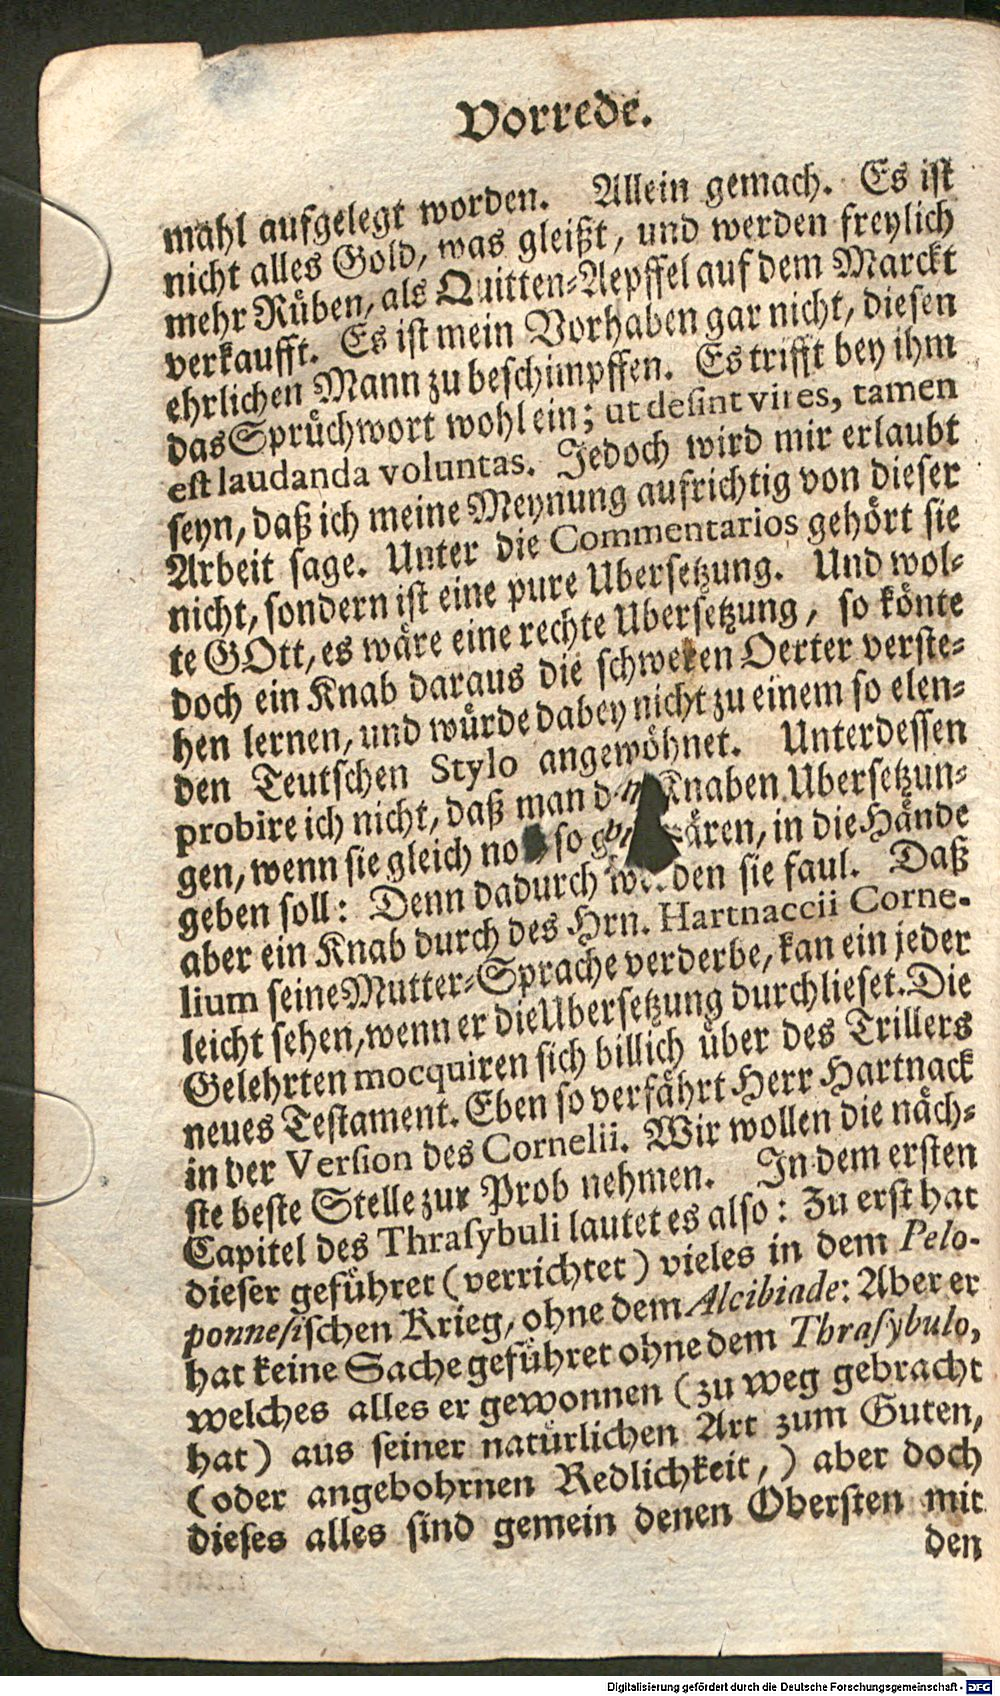 Vorrede.
mahl aufgelegt worden. Allein gemach. Es ist
nicht alles Gold, was gleißt, und werden freylich
mehr Rüben, als Quitten-Aepffel auf dem Marckt
verkaufft. Es ist mein Vorhaben gar nicht, diesen
ehrlichen Mann zu beschimpffen. Es trifft bey ihm
das Sprüchwort wohl ein; ut desint vires, tamen
est laudanda voluntas. Jedoch wird mir erlaubt
seyn, daß ich meine Meynung aufrichtig von dieser
Arbeit sage. Unter die Commentarios gehört sie
nicht, sondern ist eine pure Ubersetzung. Und wol-
te GOtt, es wäre eine rechte Ubersetzung, so könte
doch ein Knab daraus die schweren Oerter verste-
hen lernen, und würde dabey nicht zu einem so elen-
den Teutschen Stylo angewöhnet. Unterdessen
probire ich nicht, daß man Knaben Ubersetzun-
gen, wenn sie gleich so wären, in die Hände
geben soll: Denn dadurch werden sie faul. Daß
aber ein Knab durch des Hrn. Hartnaccii Corne-
lium seine Mutter-Sprache verderbe, kan ein jeder
leicht sehen, wenn er die Ubersetzung durchlieset. Die
Gelehrten mocquiren sich billich über des Trillers
neues Testament. Eben so verfährt Herr Hartnack
in der Version des Cornelii. Wir wollen die näch-
ste beste Stelle zur Prob nehmen. In dem ersten
Capitel des Thrasybuli lautet es also: Zu erst hat
dieser geführet (verrichtet) vieles in dem Pelo-
ponnesischen Krieg, ohne dem Alcibiade: Aber er
hat keine Sache geführet ohne dem Thrasybulo,
welches alles er gewonnen (zu weg gebracht
hat) aus seiner natürlichen Art zum Guten,
(oder angebohrnen Redlichkeit,) aber doch
dieses alles sind gemein denen Obersten mit
den
Digitalisierung gefördert durch die Deutsche Forschungsgemeinschaft - DFG